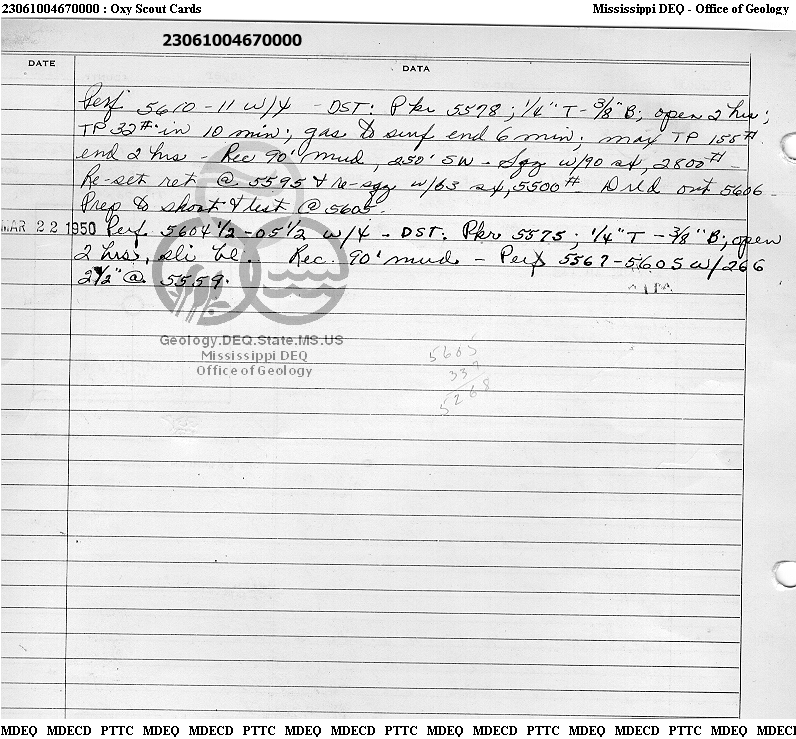 23061004670000 : Oxy Scout Cards
Mississippi DEQ - Office of Geology
23061004670000
DATE
DATA
Perf 5610-11 w/4 - DST: Pkr 5578; 1/4" T - 3/8" B; open 2 hrs;
TP 32# in 10 min; gas to surf end 6 min; max TP 155#
end 2 hrs - Rec 90' mud, 250' SW - Sqz w/90 sx, 2800# -
Re-set ret @ 5595 & re-sqz w/63 sx, 5500# Drld out 5606 -
Prep to shoot & test @ 5605.
MAR 22 1950 Perf. 5604 1/2 - 05 1/2 w/4 - DST: Pkr 5575; 1/4" T - 3/8" B; open
2 hrs, sli bl. Rec. 90' mud - Perf 5567-5605 w/266
2 1/2" @ 5559.
Geology.DEQ.State.MS.US
Mississippi DEQ
Office of Geology
5605
337
5268
MDEQ MDECD PTTC MDEQ MDECD PTTC MDEQ MDECD PTTC MDEQ MDECD PTTC MDEQ MDECD PTTC MDEQ MDECI